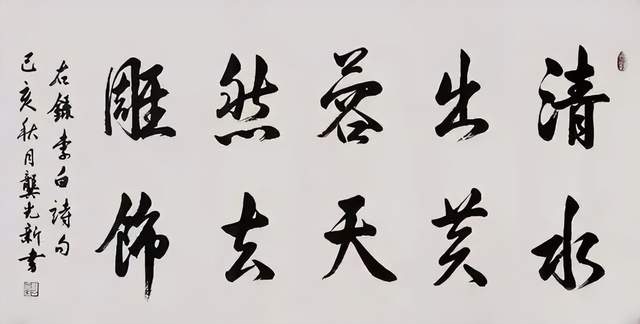 清水
出芙
蓉天
然去
雕飾
右錄李白詩句
己亥秋月龔光新書